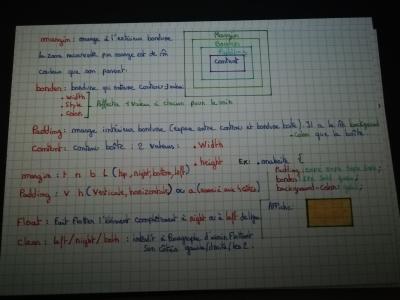 margin : marge à l'extérieur bordure
la zone recouverte par marge est de la
couleur que son parent.
border : bordure qui entoure contenu :
• Width
• Style
• color
Affecter 1 valeur à chacun pour le voir
Margin
Border
Padding
Content
Padding : marge intérieur bordure (espace entre contenu et bordure boîte) Il a la m̂ background
color que la boîte.
Content : contenu boîte : 2 valeurs :
• Width
• height
margin : t r b l (top, right, bottom, left)
Padding : v h (verticale, horizontale) ou a
Ex :
{
Padding :
border : solid
background-color :
Float : Fait flotter l'élément complètement à right ou à left de ligne
Affiche :
Clear : left / right / both : interdit à Paragraphe d'avoir Flottant
Sur côtés gauche/droite/les 2.